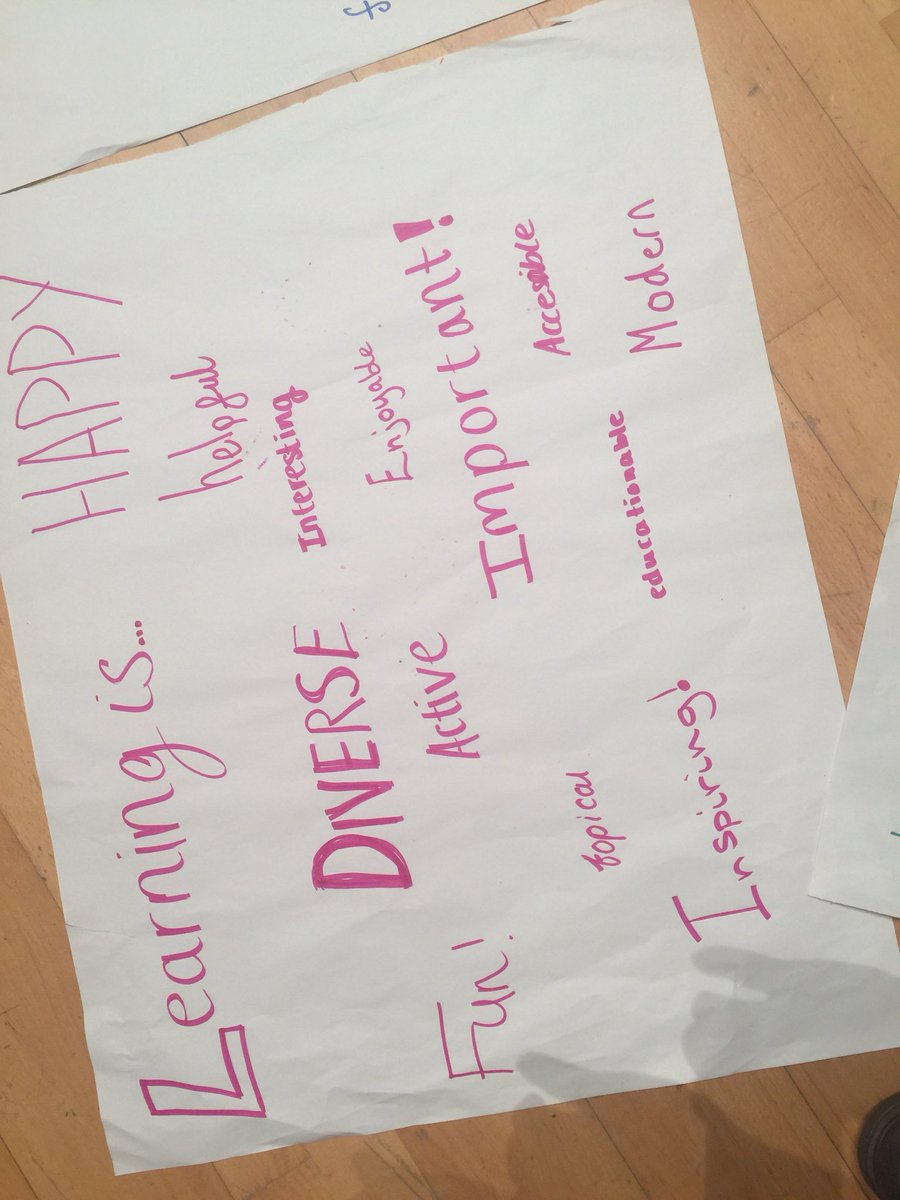 HAPPY
Learning is...
helpful
Interesting
DIVERSE
Enjoyable
Active
Important!
Fun!
Accesible
topical
educationable
Modern
Inspiring!